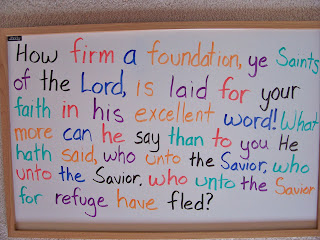 How firm a foundation, ye Saints
of the Lord, is laid for your
faith in his excellent word! What
more can he say than to you He
hath said, who unto the Savior, who
unto the Savior, who unto the Savior
for refuge have fled?